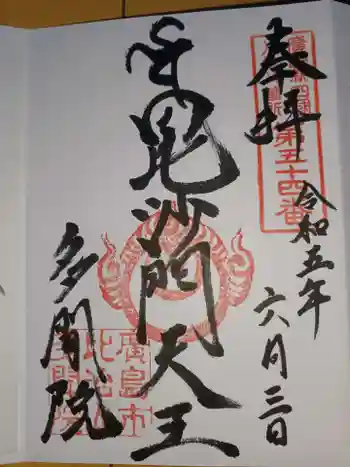 奉拝
第五十四番
令和五年
六月三日
毘沙門天王
多聞院
廣島市
比治山